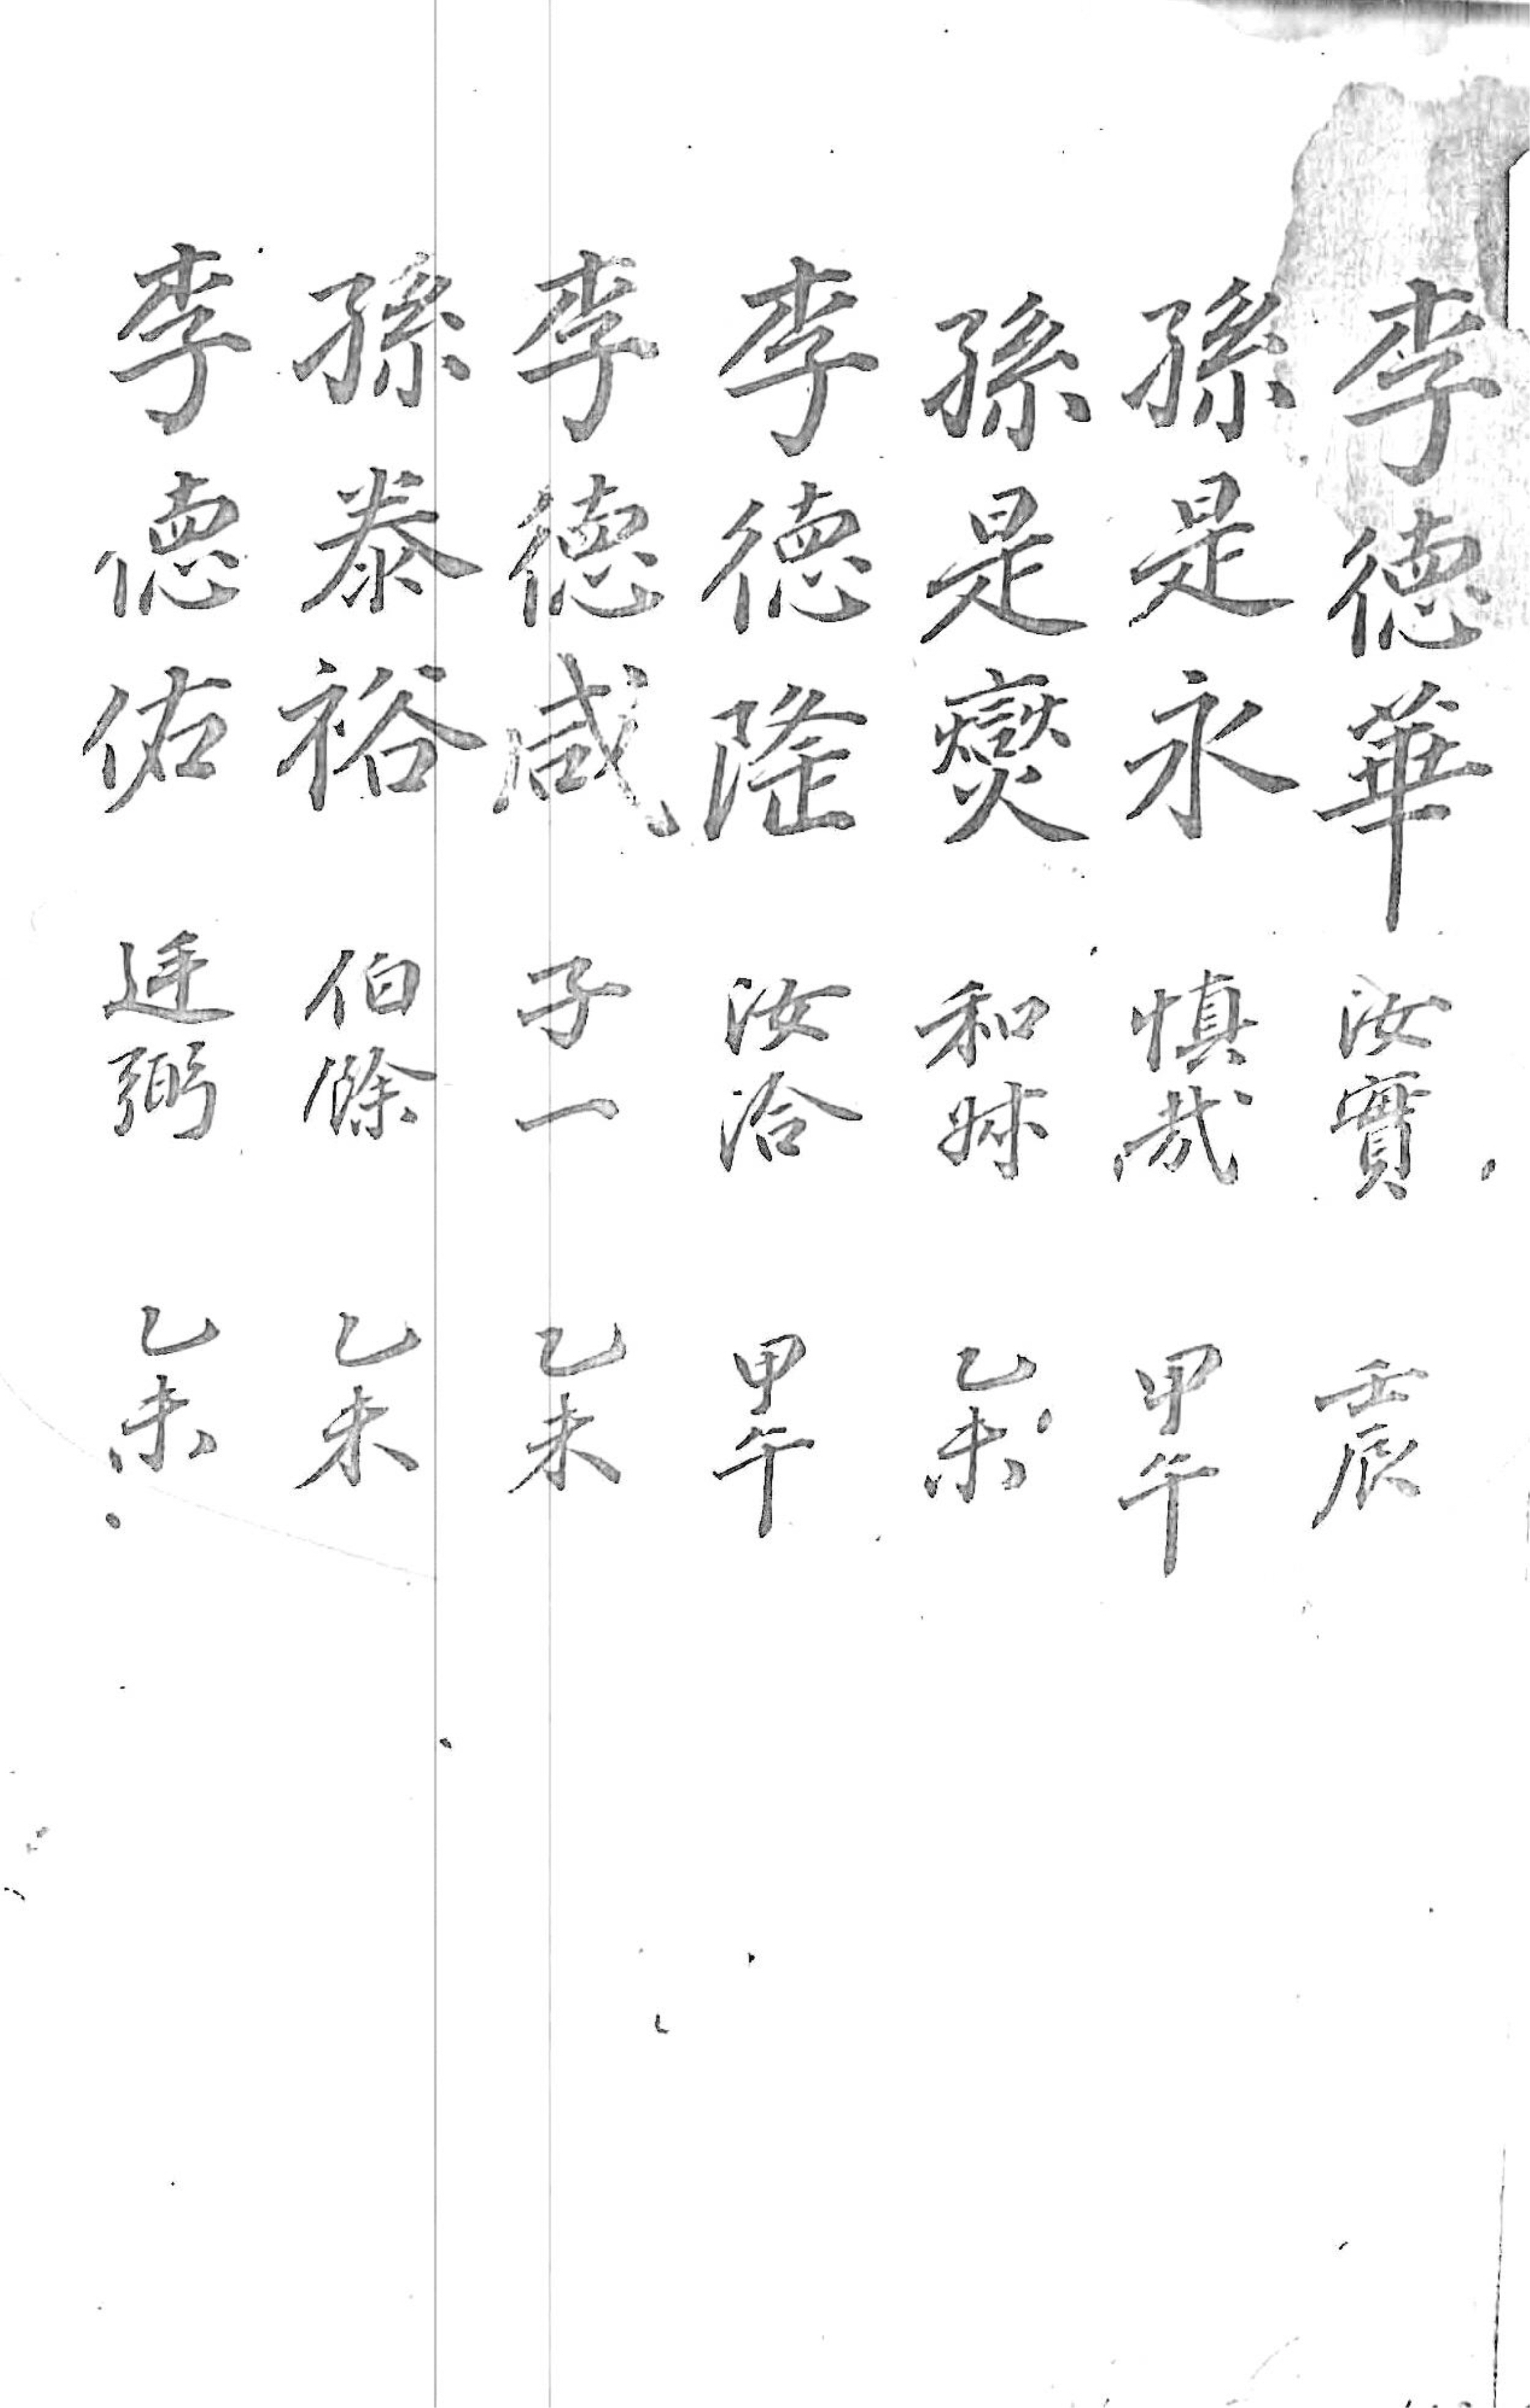 李德華 汝實 壬辰
孫是永 慎哉 甲午
孫是燮 和姊 乙未
李德隆 汝洽 甲午
李德咸 子一 乙未
孫泰裕 伯餘 乙未
李德佑 廷弼 乙未